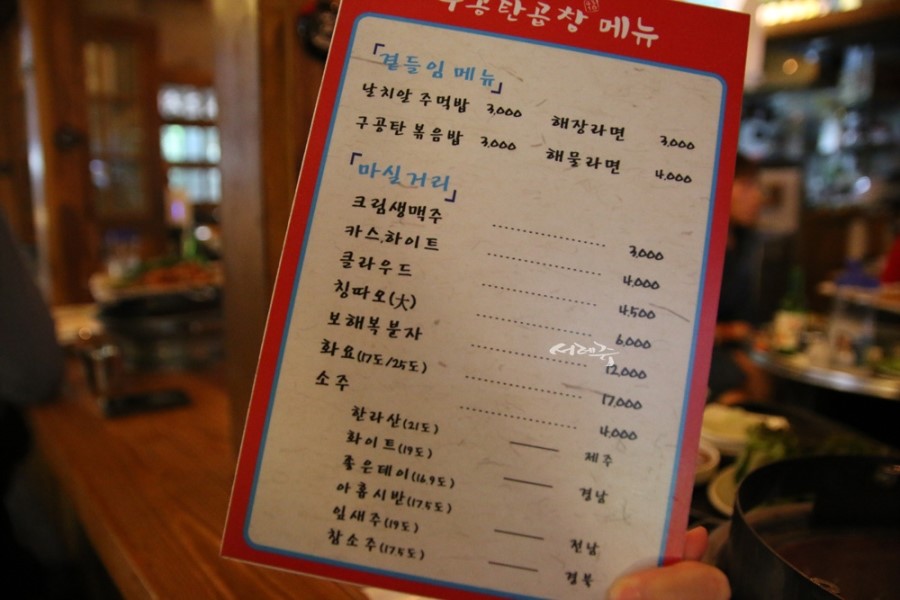 구공탄곱창 메뉴
「곁들임 메뉴」
날치알 주먹밥 3,000 해장라면 3,000
구공탄 볶음밥 3,000 해물라면 4,000
「마실거리」
크림생맥주 3,000
카스,하이트 4,000
클라우드 4,500
칭따오(大) 6,000
보해복분자 12,000
화요(17도/25도) 17,000
소주 4,000
한라산(21도) 제주
화이트(19도)
좋은데이(16.9도) 경남
아홉시반(17.5도)
잎새주(19도) 전남
참소주(17.5도) 경북